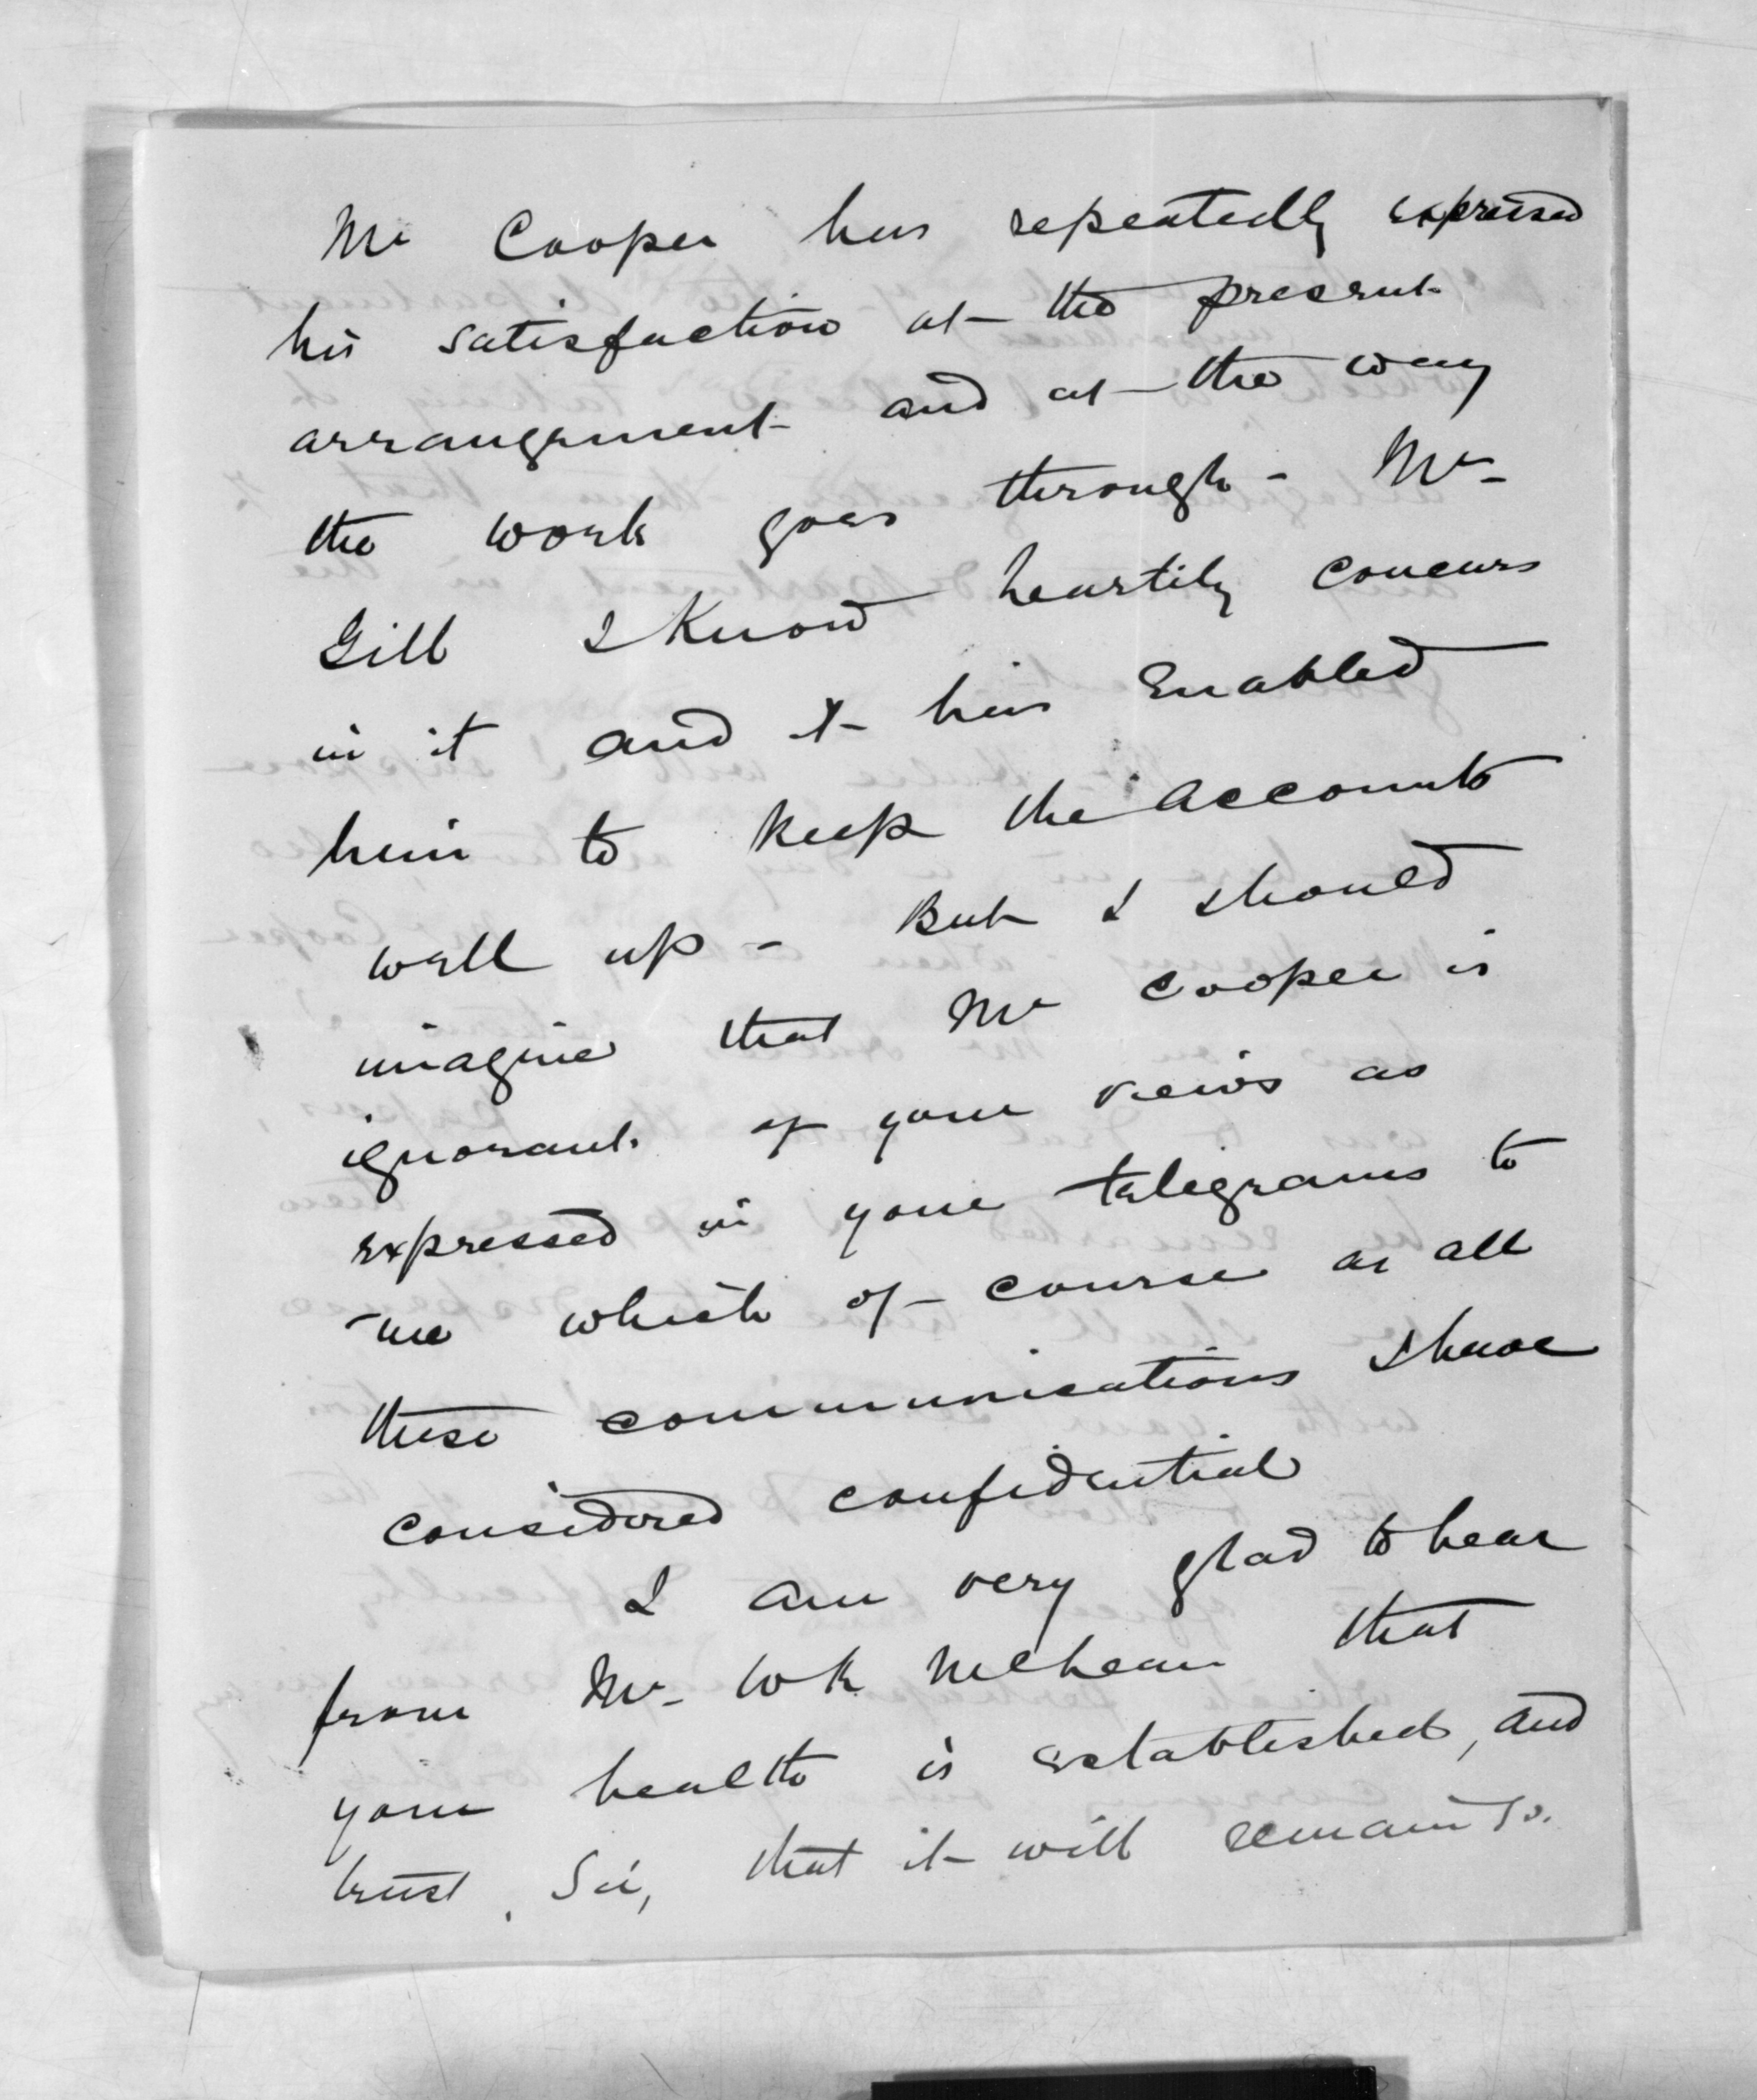 Mr Cooper has repeatedly expressed
his satisfaction at the present
arrangement and at the way
the work goes through - Mr-
Gill I know heartily concurs
in it and it has enabled
him to keep the accounts
well up - But I should
imagine that Mr Cooper is
ignorant of your views as
expressed in your telegrams to
me which of course as all
these communications I have
considered confidential
I am very glad to hear
from Mr- WR McLean that
your health is established, and
trust, Sir, that it will remain so.